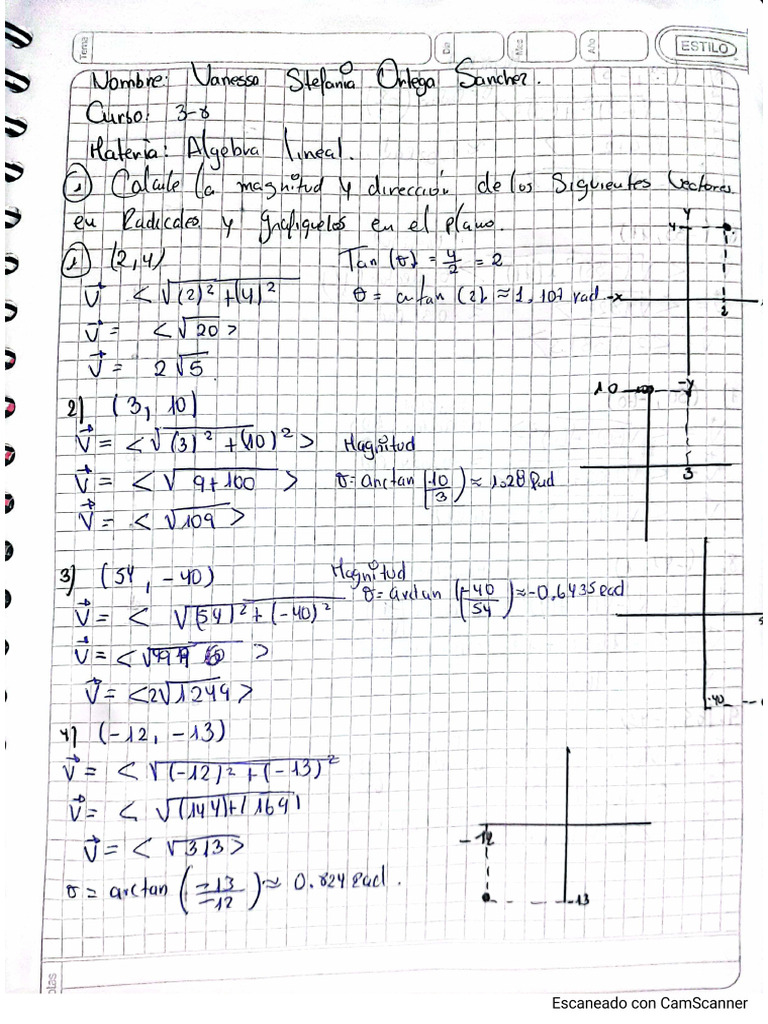 Tema
Dia
Mes
Año
ESTILO
Nombre: Vanessa Stefania Ortega Sanchez.
Curso: 3-8
Materia: Algebra lineal.
① Calcule la magnitud y dirección de los Siguientes Vectores
en Radicales y grafiquelos en el plano.
① (2,4)
Tan (θ) = 4/2 = 2
V⃗ <√(2)² + (4)²
θ = artan (2) ≈ 1,107 rad
V⃗ = <√20>
V⃗ = 2√5
y
4
-x
2
-y
2) (3, 10)
V⃗ = <√(3)² + (10)²> Magnitud
V⃗ = <√9+100> θ = arctan (10/3) ≈ 1.28 Rad
V⃗ = <√109>
10
3
3) (54, -40)
Magnitud
θ = arctan (-40/54) ≈ -0,6435 rad
V⃗ = < √(54)² + (-40)²
V⃗ = <√ >
V⃗ = <2√1249>
-40
4) (-12, -13)
V⃗ = <√(-12)² + (-13)²
V⃗ = < √(144)+(169)
V⃗ = < √313>
θ = arctan (-13/-12) ≈ 0.824 Rad.
-12
-13
otas
Escaneado con CamScanner